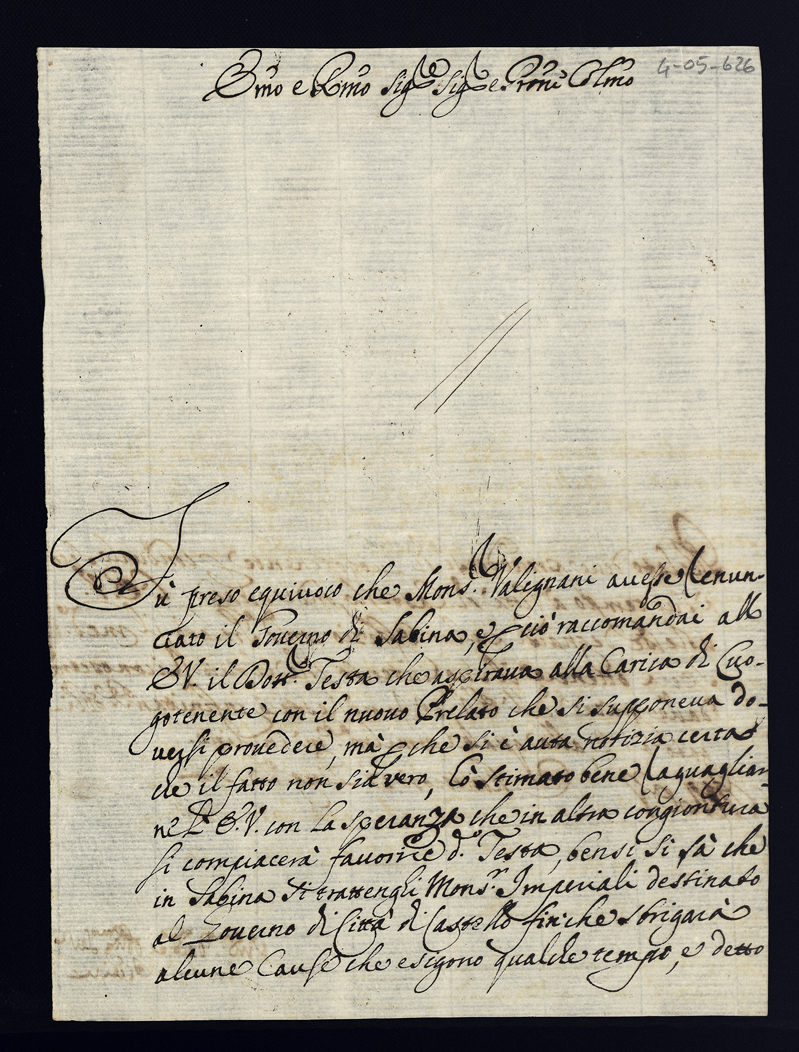 4-05-626
Emo e Rmo Sigre Sigr e Prone Colmo
Fù preso equiuoco che Monsr. Valignani auesse renun-
ciato il Gouerno di Sabina, e ꝑ ciò raccomandai all
E.V. il Dottr. Testa che aspiraua alla Carica di Luo-
gotenente con il nuovo Prelato che si supponeua do-
uersi prouedere, mà ꝑche si è auta notizia certa
che il fatto non sia vero, hò stimato bene raguaglar-
ne l'E.V. con la speranza che in altra congiontura
si compiacerà fauorire do. Testa, bensi si sà che
in Sabina si trattenghi Monsr. Imperiali destinato
al Gouerno di Città di Castello finche sbrigarà
alcune Cause che esigono qualche tempo, e detto